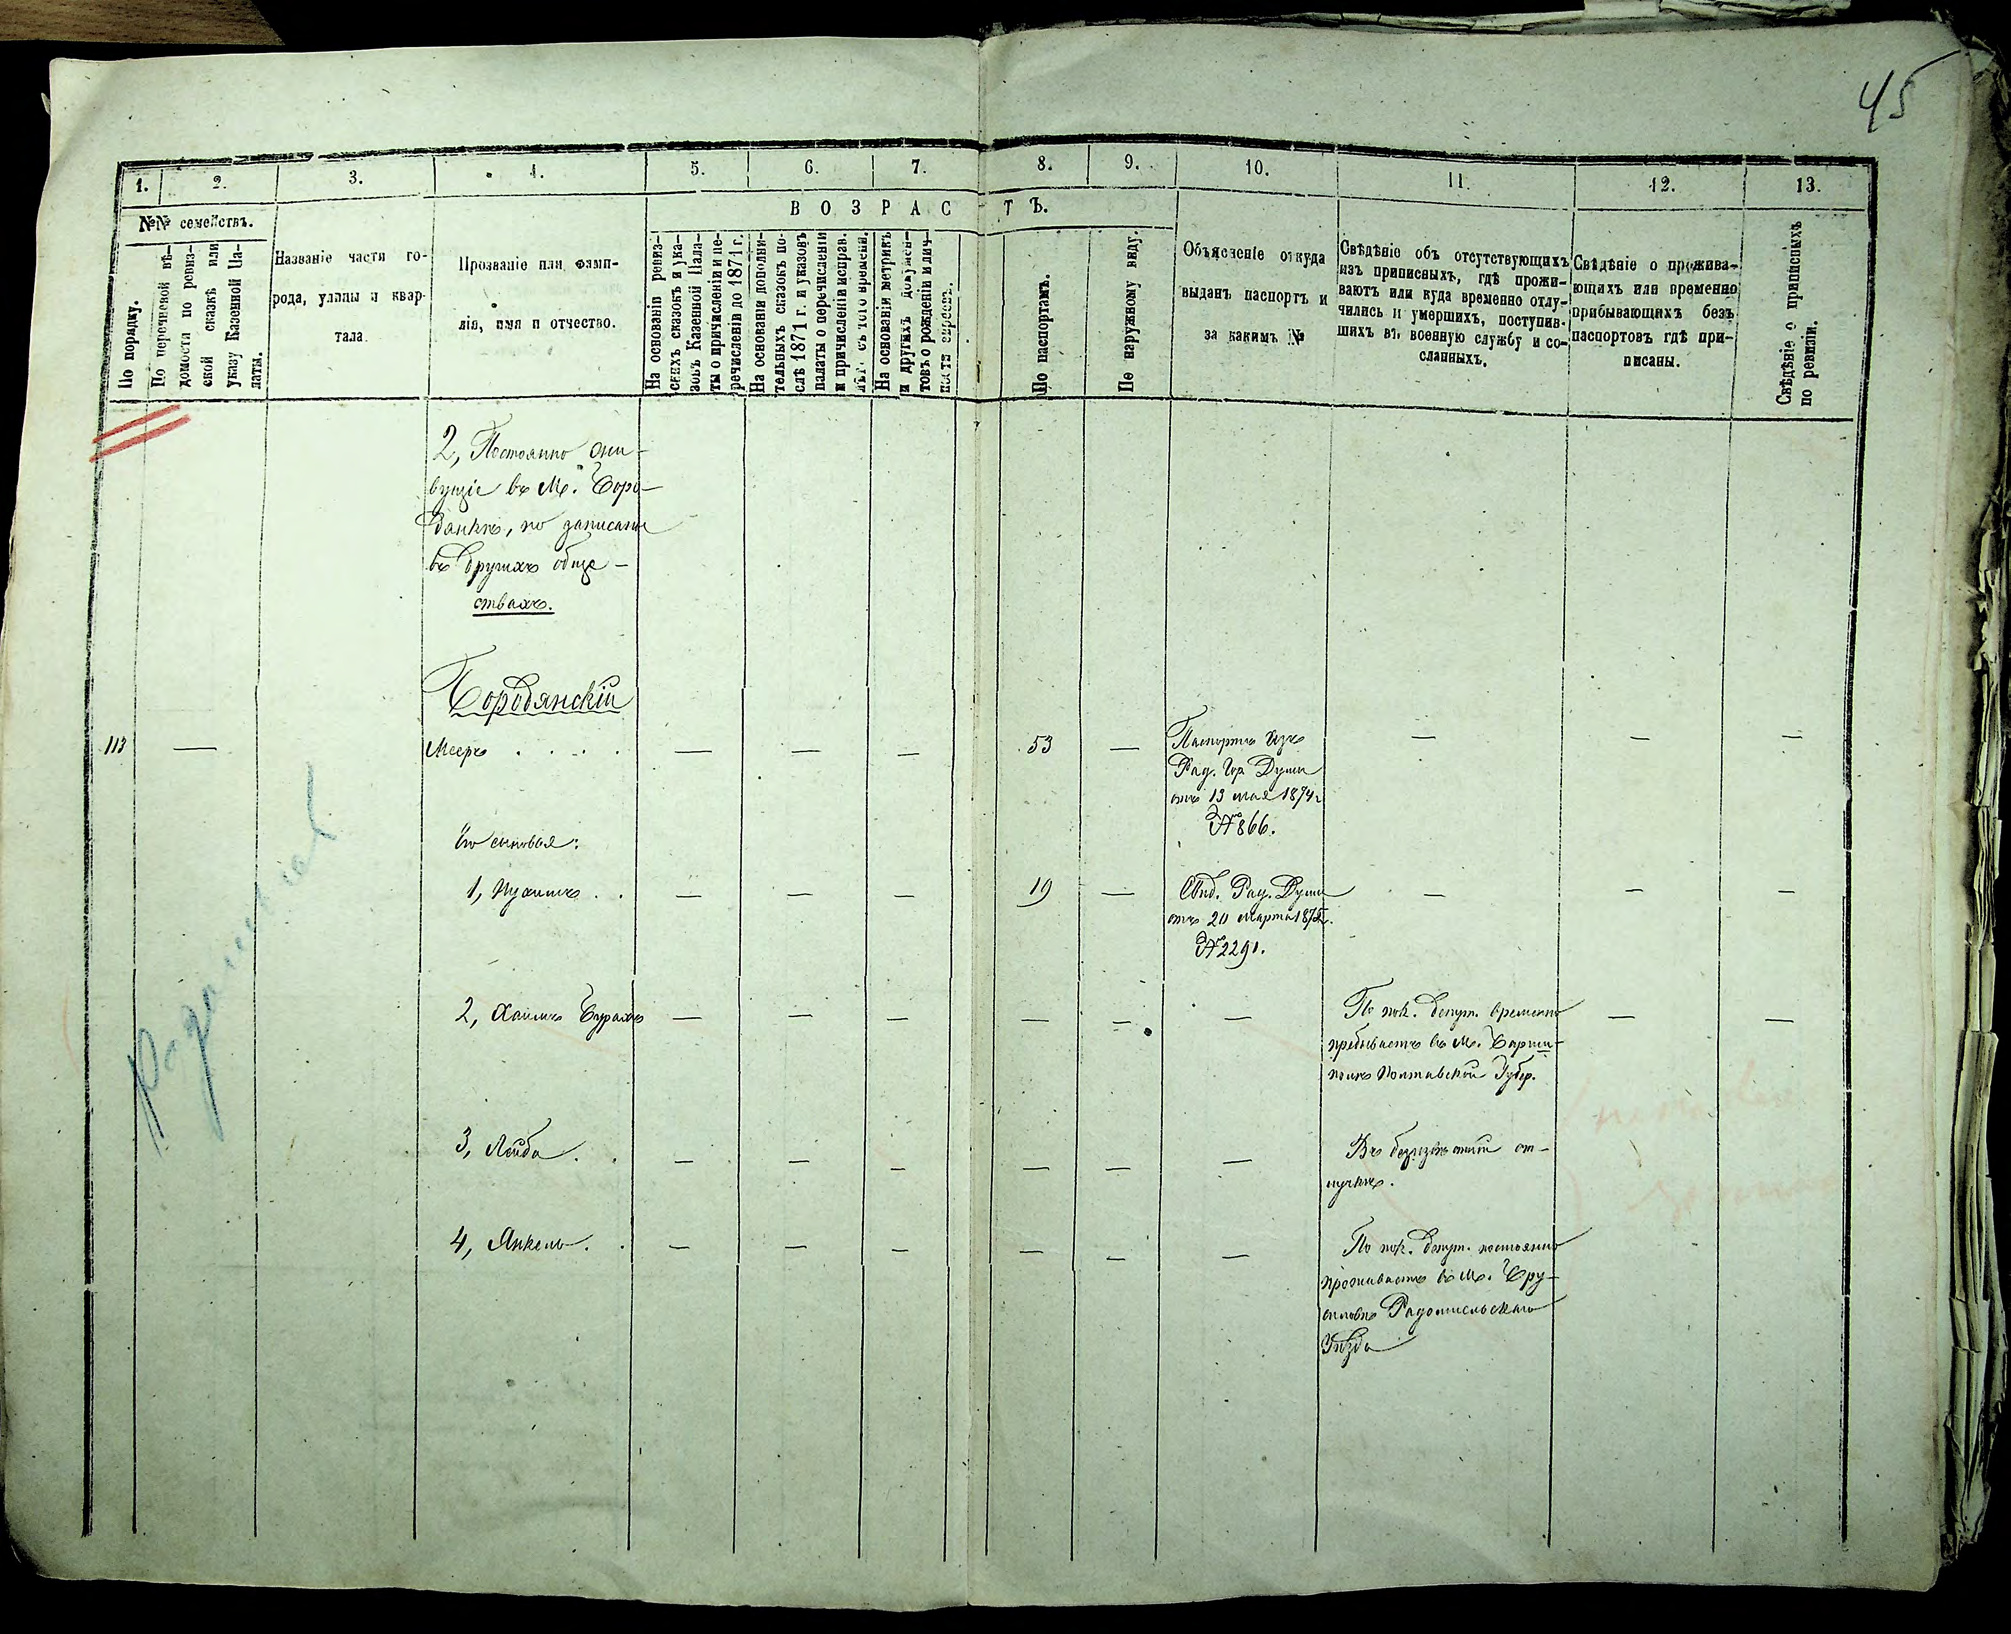 45
1. 2. 3. 4. 5. 6. 7. 8. 9. 10. 11. 12. 13.
№№ семействъ.
По порядку.
По перечневой вѣ-
домости по ревиз-
ской сказкѣ или
указу Казенной Па-
латы.
Названіе части го-
рода, улицы и квар-
тала.
Прозваніе или фами-
лія, имя и отчество.
ВОЗРАСТЪ.
На основаніи ревиз-
скихъ сказокъ и ука-
зовъ Казенной Пала-
ты о причисленіи и пе-
речисленіи до 1871 г.
На основаніи дополни-
тельныхъ сказокъ по-
слѣ 1871 г. и указовъ
палаты о перечисленіи
и причисленіи исправ.
лѣт. съ того времени.
На основаніи метрикъ
и другихъ докумен-
товъ о рожденіи и лич-
ности евреевъ.
По паспортамъ.
По наружному виду.
Объясненіе откуда
выданъ паспортъ и
за какимъ №
Свѣдѣніе объ отсутствующихъ
изъ приписныхъ, гдѣ прожи-
ваютъ или куда временно отлу-
чились и умершихъ, поступив-
шихъ въ военную службу и со-
сланныхъ.
Свѣдѣніе о прожива-
ющихъ или временно
прибывающихъ безъ
паспортовъ гдѣ при-
писаны.
Свѣдѣніе о приписныхъ
по ревизіи.
2, Постоянно жи-
вущіе въ М. Боро-
дянкѣ, но записаны
въ другихъ обще-
ствахъ.
Бородянскій
113 — Мееръ . . . . — — — 53 — Паспортъ изъ — — —
Рад. Гор. Думы
отъ 13 мая 1874 г.
№ 866.
Его сыновья:
1, Нухимъ . . — — — 19 — Свид. Рад. Думы — — —
отъ 20 марта
№ 2291.
2, Хаимъ Бурахъ — — — — — — По пок. депут. временно — —
пребываетъ въ М.
Полтавской Губер.
3, Лейба . . — — — — — — Въ безизвѣстной от-
лучкѣ.
4, Янкель . . — — — — — — По пок. депут. постоянно
проживаетъ въ М. Бру-
силовѣ Радомысльскаго
Уѣзда